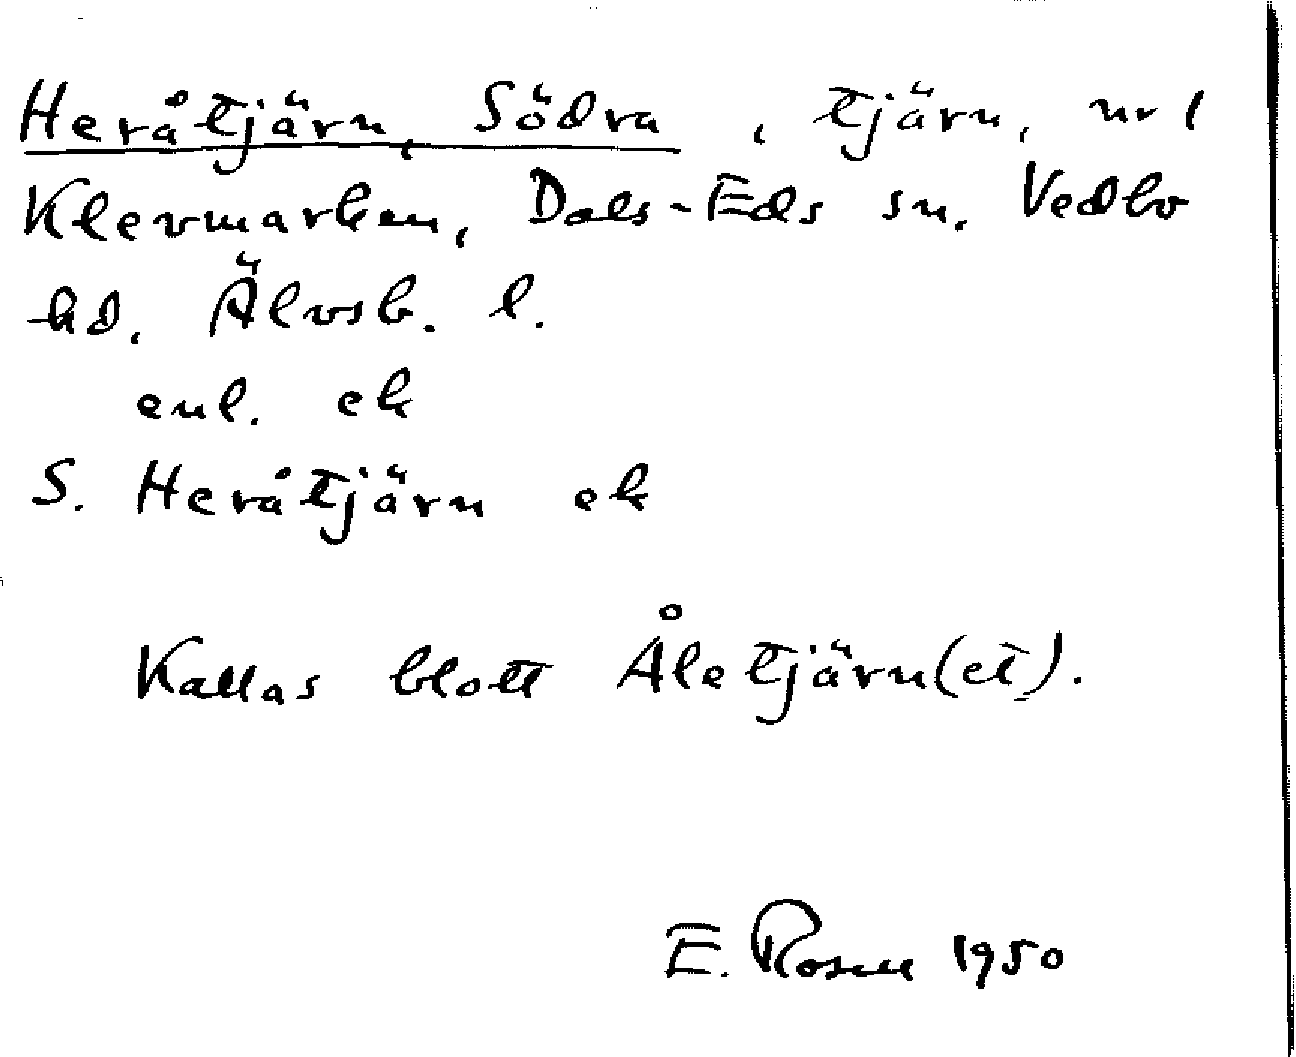 Heråtjärn, Södra, tjärn, nr 1
Klevmarken, Dals-Eds sn. Vedbo
hd. Älvsb. l.
enl. ek
S. Heråtjärn ek
Kallas blott Åletjärn(et).
E. Rosell 1950